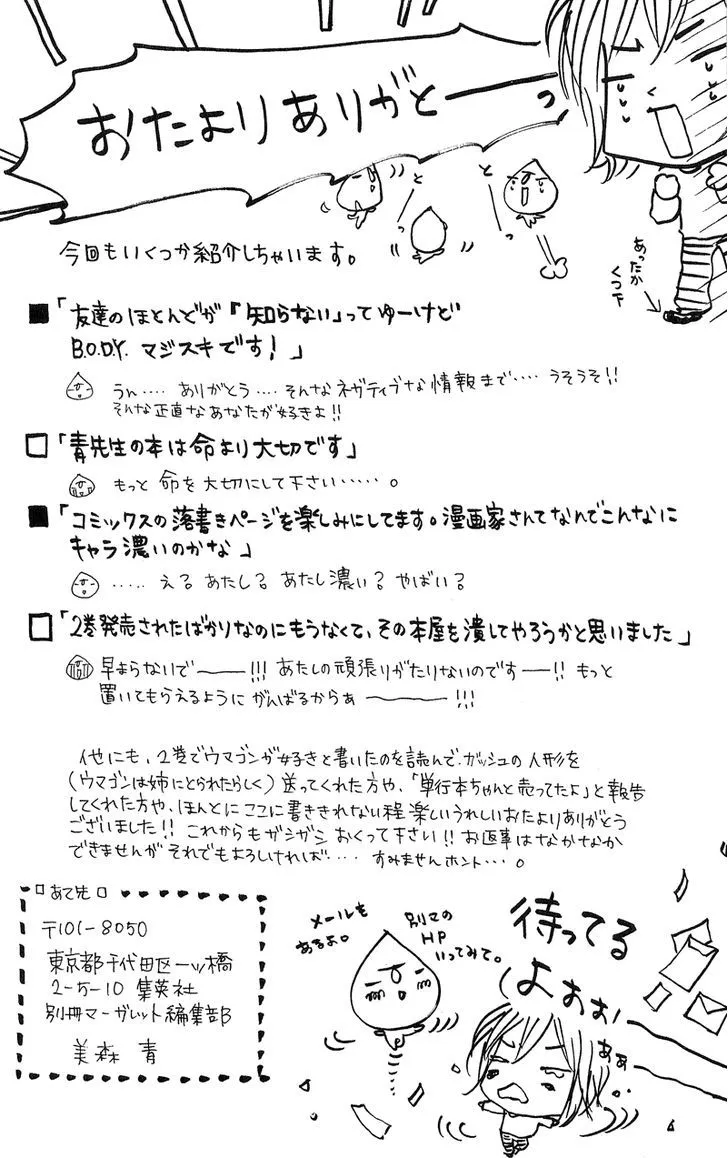 おたよりありがとーーっ
とっ
とっ
あったか
くつ下
今回もいくつか紹介しちゃいます。
■「友達のほとんどが『知らない』ってゆーけど
B.O.D.Y. マジスキです!」
うん‥‥ ありがとう‥‥ そんなネガティブな情報まで‥‥ うそうそ!!
そんな正直なあなたが好きよ!!
□「青先生の本は命より大切です」
もっと 命を大切にして下さい‥‥‥。
■「コミックスの落書きページを楽しみにしてます。漫画家さんてなんでこんなに
キャラ濃いのかな」
‥‥‥ える あたし? あたし濃い? やばい?
□「2巻発売されたばかりなのにもうなくて、その本屋を潰してやろうかと思いました」
早まらないで――!!! あたしの頑張りがたりないのです――!! もっと
置いてもらえるように がんばるからぁ ――!!!
他にも、2巻でウマゴンが好きと書いたのを読んで、ガッシュの人形を
(ウマゴンは姉にとられたらしく)送ってくれた方や、「単行本ちゃんと売ってたよ」と報告
してくれた方や、ほんとにここに書ききれない程 楽しいうれしいおたよりありがとう
ございました!! これからもガシガシ おくって下さい!! お返事はなかなか
できませんが それでもよろしければ‥‥ すみませんホント‥‥。
□あて先□
〒101-8050
東京都千代田区一ッ橋
2-5-10 集英社
別冊マーガレット編集部
美森 青
メールも
あるよ。
別マの
HP
いってみて。
待ってる
よぉぉ
ああ